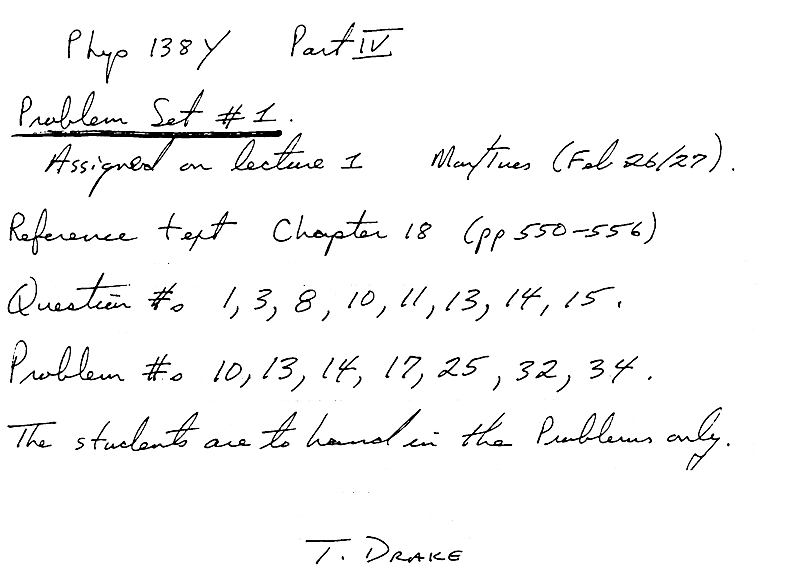 Phys 138Y Part IV
Problem Set # 1.
Assigned on lecture 1 Mon/Tues (Feb 26/27).
Reference text Chapter 18 (pp 550-556)
Question #s 1, 3, 8, 10, 11, 13, 14, 15.
Problem #s 10, 13, 14, 17, 25, 32, 34.
The students are to hand in the Problems only.
T. DRAKE